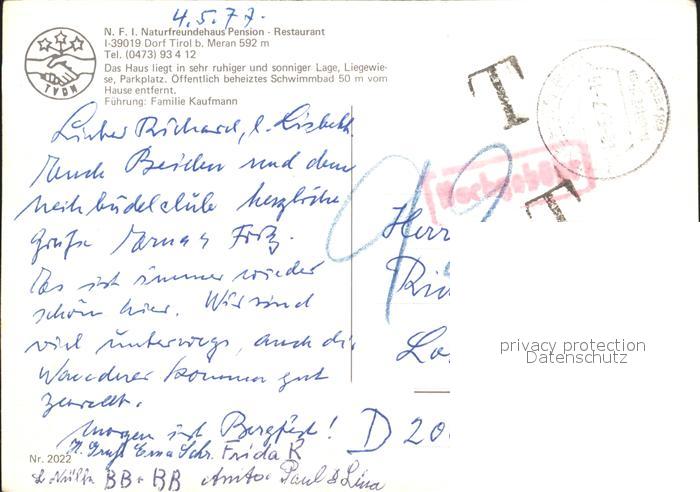 4.5.77.
N. F. I. Naturfreundehaus Pension - Restaurant
I-39019 Dorf Tirol b. Meran 592 m
Tel. (0473) 93 4 12
Das Haus liegt in sehr ruhiger und sonniger Lage, Liegewie-
se, Parkplatz. Öffentlich beheiztes Schwimmbad 50 m vom
Hause entfernt.
Führung: Familie Kaufmann
TVDN
T
T
Nachgebühr
Lieber Richard, l. Lisbeth
Euch Beiden und dem
herzliche
Grüße Erna & Fritz.
Es ist immer wieder
schön hier. Wir sind
viel unterwegs, auch die
Wanderer kommen gut
zurecht.
Morgen ist Bergfest!
Frida R
BB + BB Anita Paul & Lina
Nr. 2022
Herr
D 20
privacy protection
Datenschutz